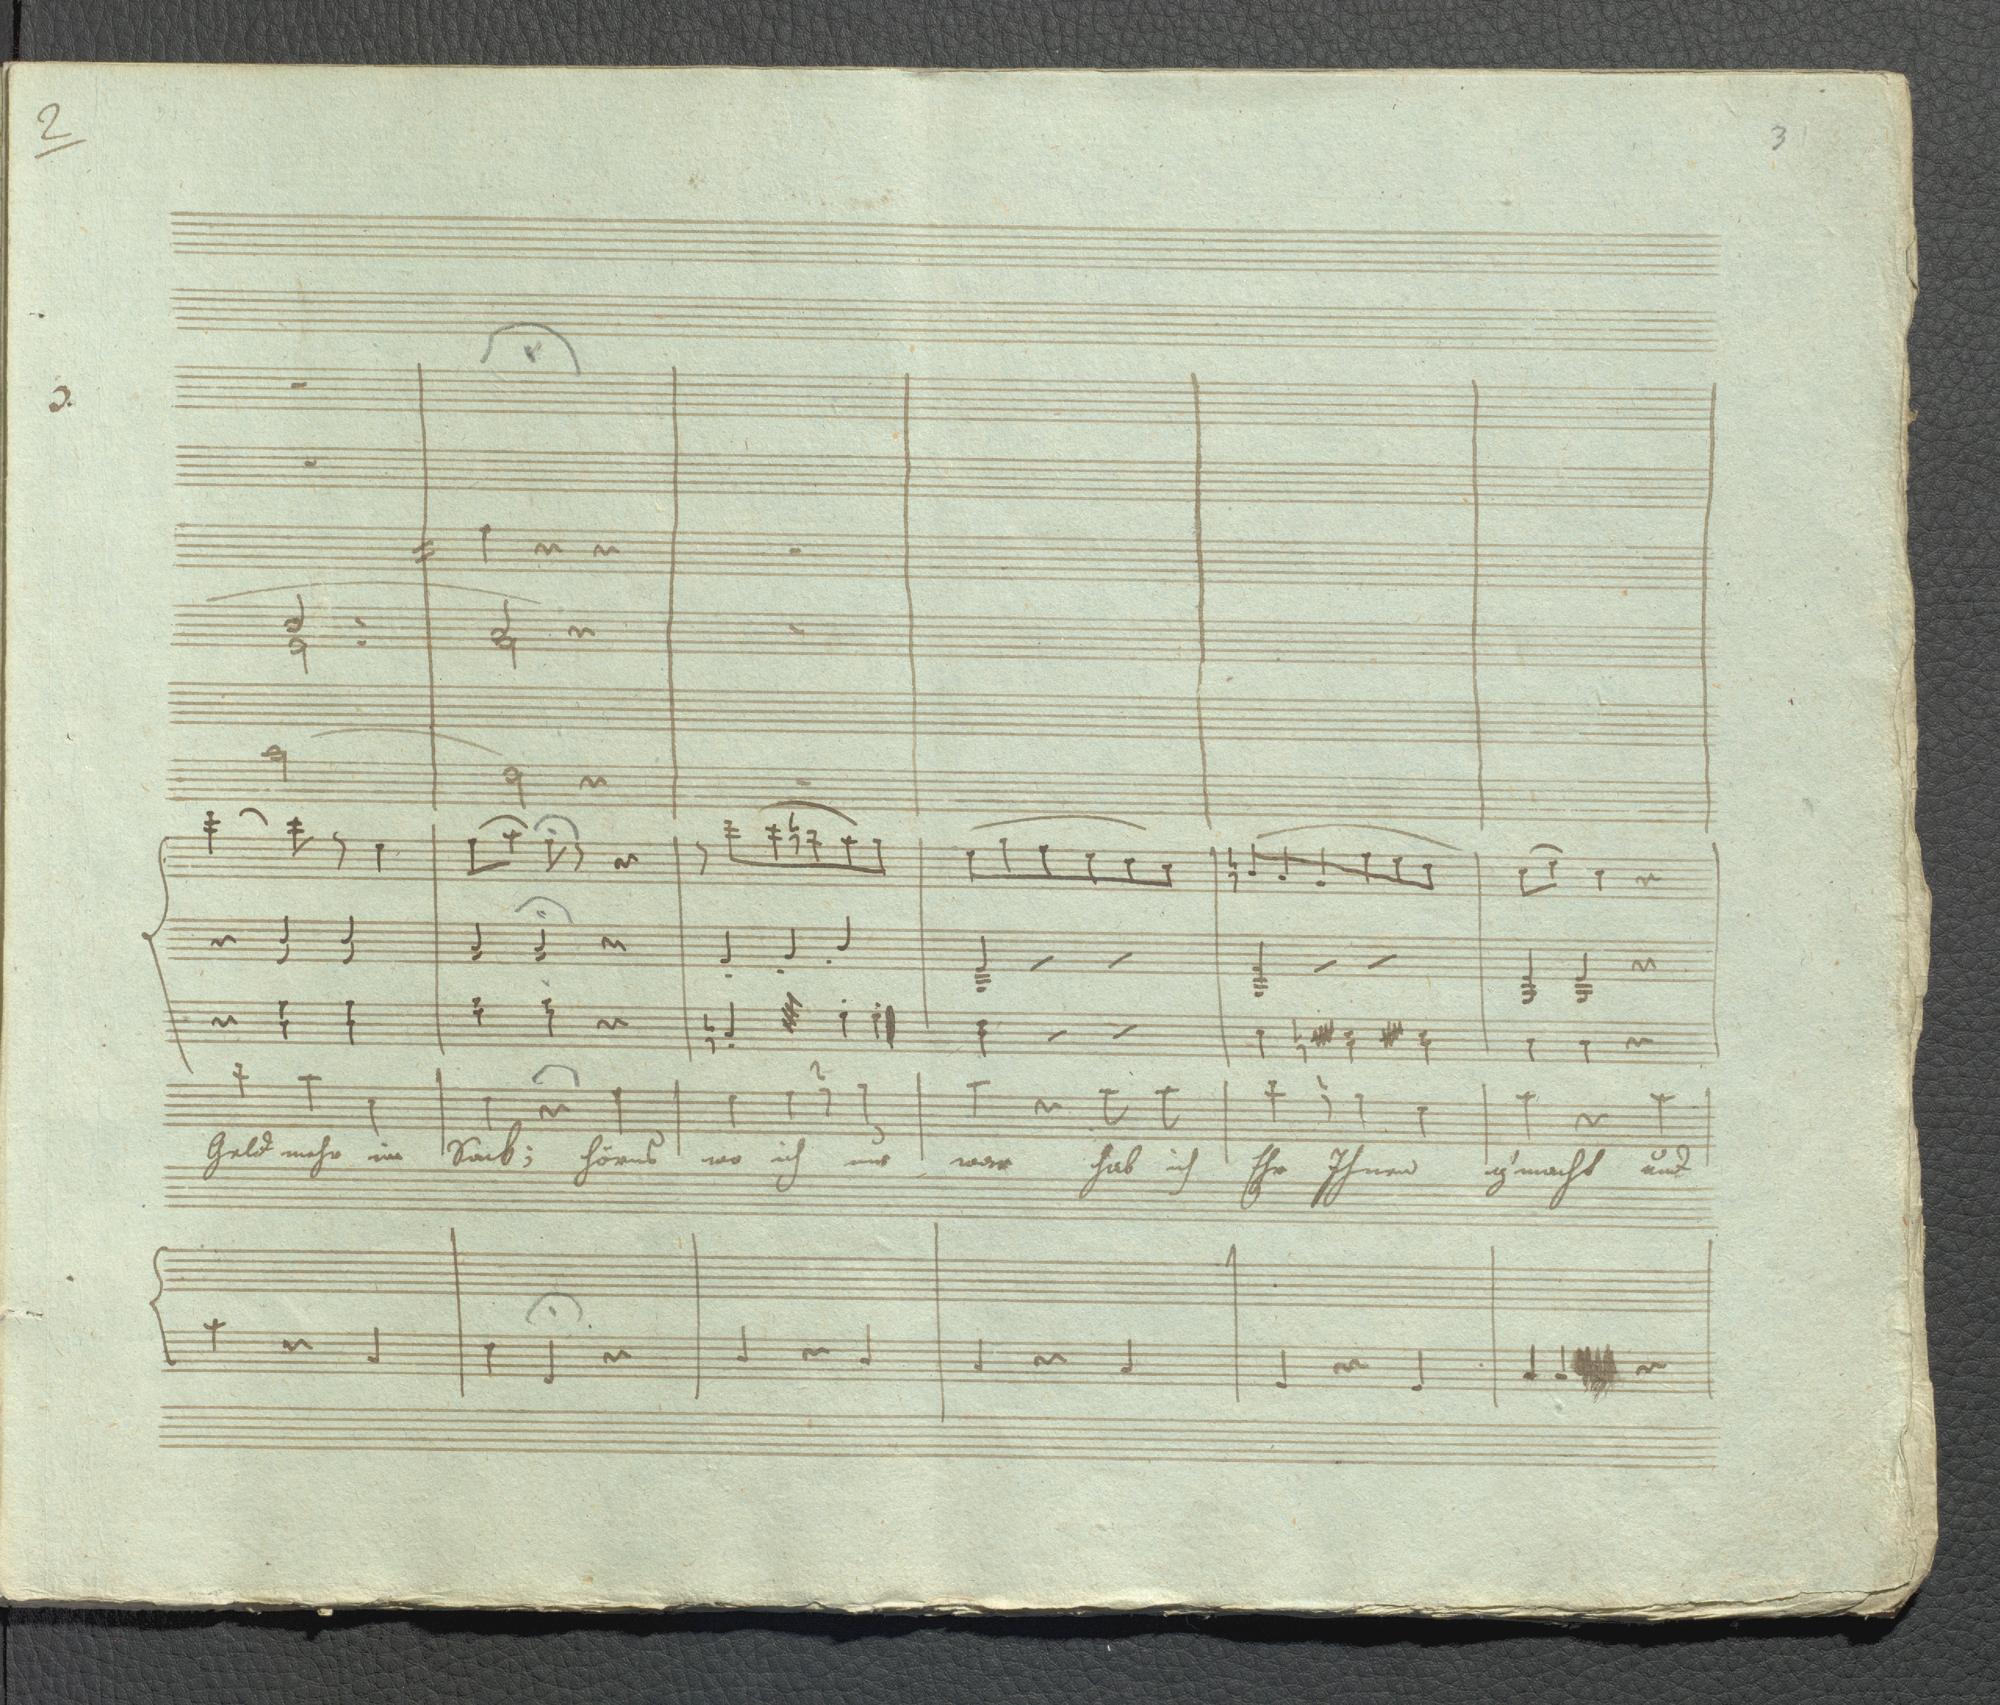 2
3
Geld mehr im Sack; hörns wo ich nur war hab ich Ihr Ihnen g'macht und